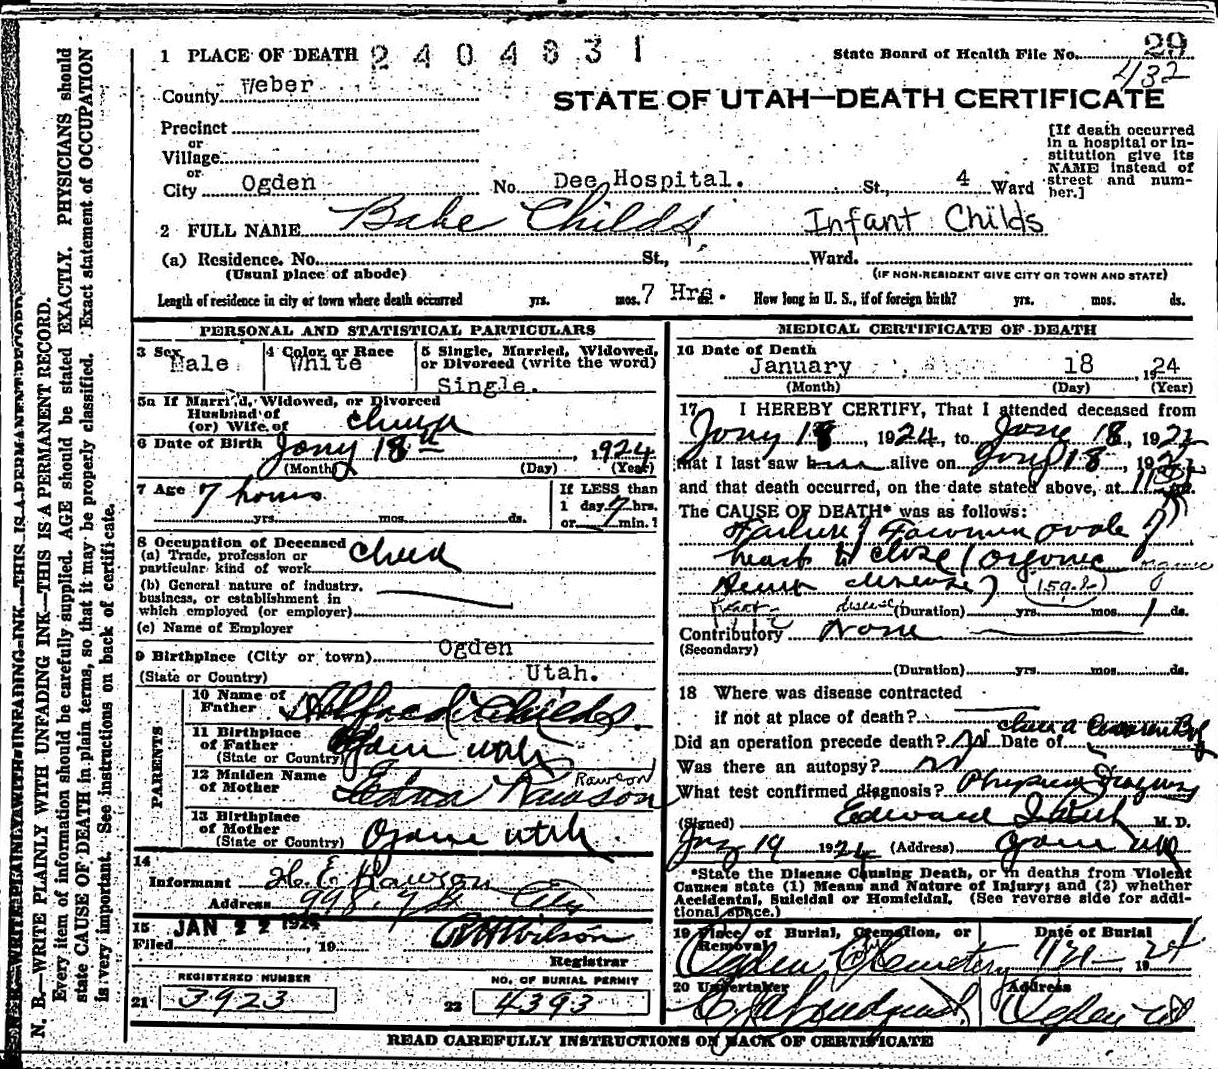 N. B.—WRITE PLAINLY WITH UNFADING INK—THIS IS A PERMANENT RECORD.
Every item of information should be carefully supplied. AGE should be stated EXACTLY. PHYSICIANS should
state CAUSE OF DEATH in plain terms, so that it may be properly classified. Exact statement of OCCUPATION
is very important. See instructions on back of certificate.
1 PLACE OF DEATH 2404631
State Board of Health File No. 29
432
County Weber
STATE OF UTAH—DEATH CERTIFICATE
Precinct
or
Village
or
City Ogden No. Dee Hospital. St., 4 Ward
[If death occurred
in a hospital or in-
stitution give its
NAME instead of
street and num-
ber.]
2 FULL NAME Babe Childs Infant Childs
(a) Residence. No. St., Ward.
(Usual place of abode) (IF NON-RESIDENT GIVE CITY OR TOWN AND STATE)
Length of residence in city or town where death occurred yrs. mos. 7 Hrs. ds. How long in U. S., if of foreign birth? yrs. mos. ds.
PERSONAL AND STATISTICAL PARTICULARS
3 Sex Male
4 Color or Race White
5 Single, Married, Widowed,
or Divorced (write the word)
Single.
5a If Married, Widowed, or Divorced
Husband of
(or) Wife of
6 Date of Birth Jany 18th, 1924
(Month) (Day) (Year)
7 Age 7 hours
yrs. mos. ds.
If LESS than
1 day 7 hrs.
or min.?
8 Occupation of Deceased
(a) Trade, profession or
particular kind of work
(b) General nature of industry,
business, or establishment in
which employed (or employer)
(c) Name of Employer
9 Birthplace (City or town) Ogden
(State or Country) Utah.
PARENTS
10 Name of
Father Alfred Childs.
11 Birthplace
of Father
(State or Country) Ogden Utah
12 Maiden Name
of Mother Edna Rawson Rawson
13 Birthplace
of Mother
(State or Country) Ogden Utah.
14
Informant H. E. Rawson
Address City
15 JAN 22 1924
Filed, 19 Wilson
Registrar
REGISTERED NUMBER
21 3923
NO. OF BURIAL PERMIT
22 4393
MEDICAL CERTIFICATE OF DEATH
16 Date of Death
January 18, 1924
(Month) (Day) (Year)
17 I HEREBY CERTIFY, That I attended deceased from
Jany 18, 1924, to 18, 192
that I last saw alive on Jany 18, 192
and that death occurred, on the date stated above, at
The CAUSE OF DEATH* was as follows:
Failure of Foramen ovale of
heart to close (organic organic
heart disease) (159.2)
heart disease (Duration) yrs. mos. 1 ds.
Contributory None
(Secondary)
(Duration) yrs. mos. ds.
18 Where was disease contracted
if not at place of death?
Did an operation precede death? No Date of
Was there an autopsy? No
What test confirmed diagnosis? Physical
(Signed) Edward M. D.
19 1924 (Address) Ogden
*State the Disease Causing Death, or in deaths from Violent
Causes state (1) Means and Nature of Injury; and (2) whether
Accidental, Suicidal or Homicidal. (See reverse side for addi-
tional space.)
19 Place of Burial, Cremation, or
Removal
Date of Burial
Ogden City Cemetery 1/21— 1924
20 Undertaker Address
Ogden Ut
READ CAREFULLY INSTRUCTIONS ON BACK OF CERTIFICATE